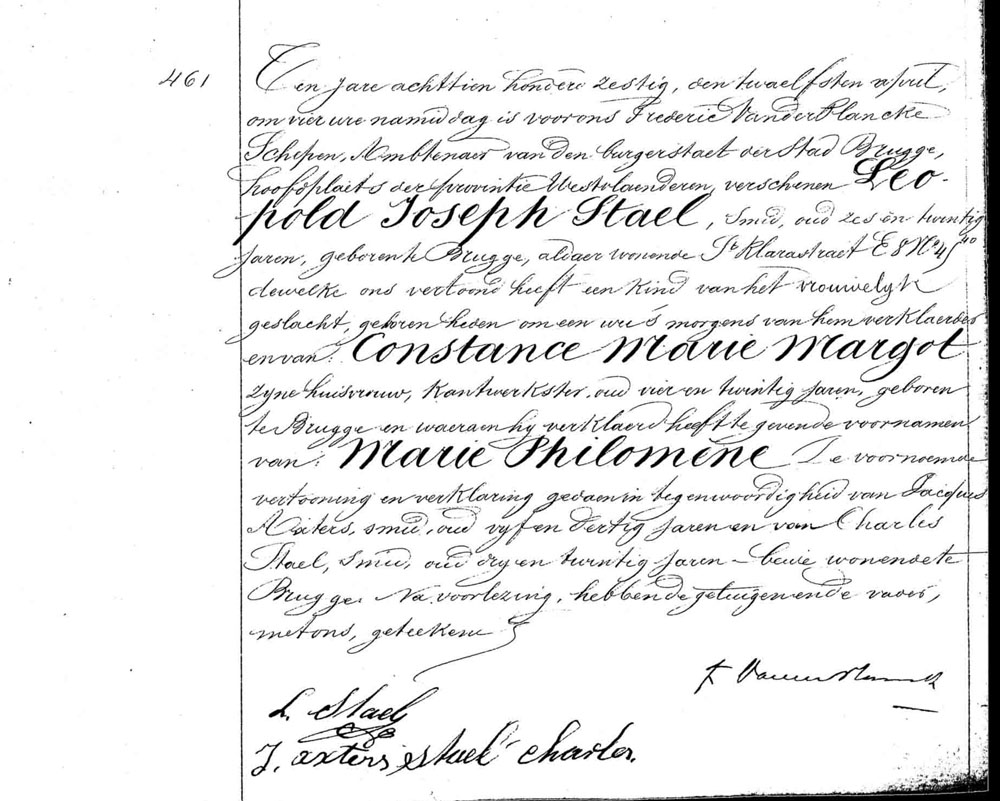 461
Ten jare achttien honderd zestig, den twaelfsten april,
om vier ure namiddag is voor ons Frederic Vander Plancke
Schepen, Ambtenaer van den burgerstaet der Stad Brugge,
hoofdplaets der provintie Westvlaenderen, verschenen Leo-
pold Joseph Stael, smid, oud zes en twintig
jaren, geboren te Brugge, aldaer wonende St Klarastraet E 8 No 45
dewelke ons vertoond heeft een kind van het vrouwelyk
geslacht, geboren heden om een ure 's morgens van hem verklaerder
en van: Constance Marie Margot
zyne huisvrouw, Kantwerkster, oud vier en twintig jaren, geboren
te Brugge en waeraen hy verklaerd heeft te gevende voornamen
van: Marie Philomène De voornoemde
vertooning en verklaring gedaen in tegenwoordigheid van Jacques
Axters, smid, oud vyf en dertig jaren en van Charles
Stael, smid, oud dry en twintig jaren – beide wonende te
Brugge. Na voorlezing, hebben de getuigen en de vader,
met ons, geteekend
F Vander Plancke
L. Stael
J. axters stael charles.